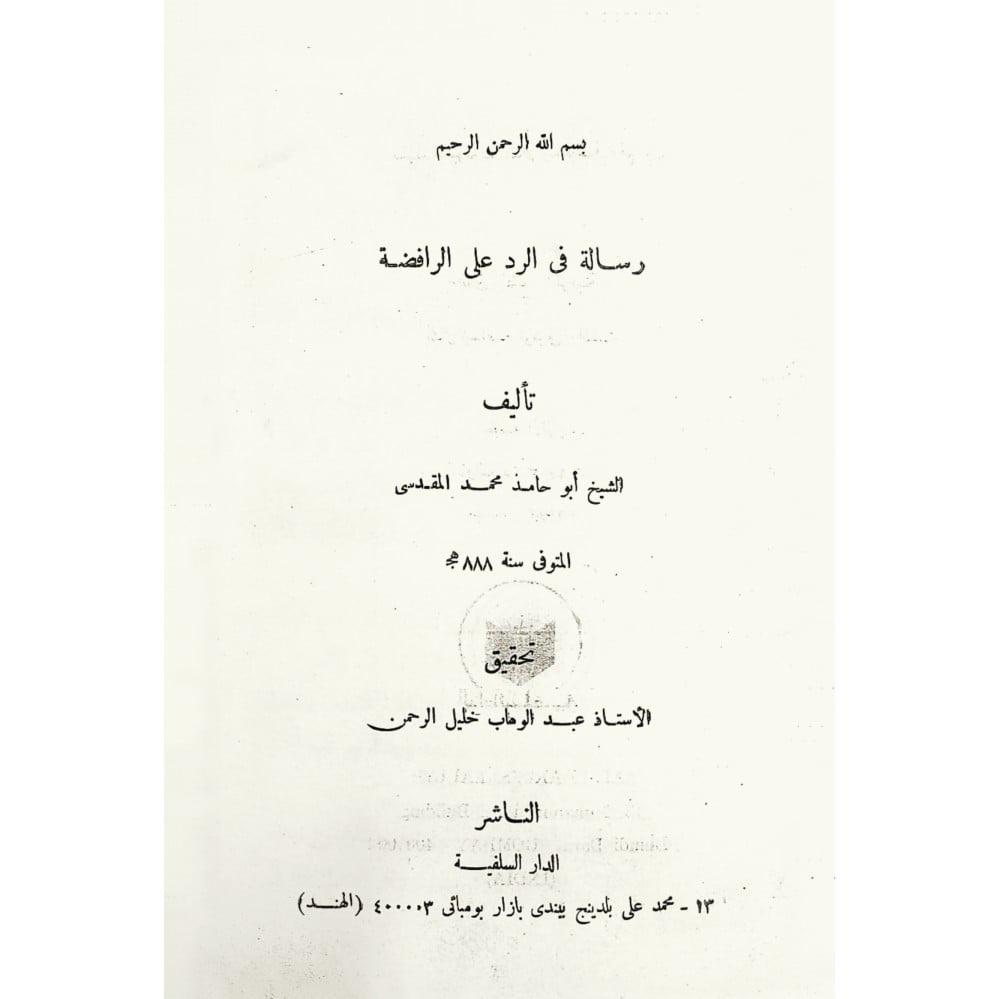 بسم الله الرحمن الرحيم
رسالة فى الرد على الرافضة
تأليف
الشيخ أبو حامذ محمد المقدسى
المتوفى سنة ٨٨٨ هج
تحقيق
الأستاذ عبد الوهاب خليل الرحمن
الناشر
الدار السلفية
١٣ - محمد على بلدينج بيندى بازار بومبائى ٤٠٠٠٠٣ (الهند)